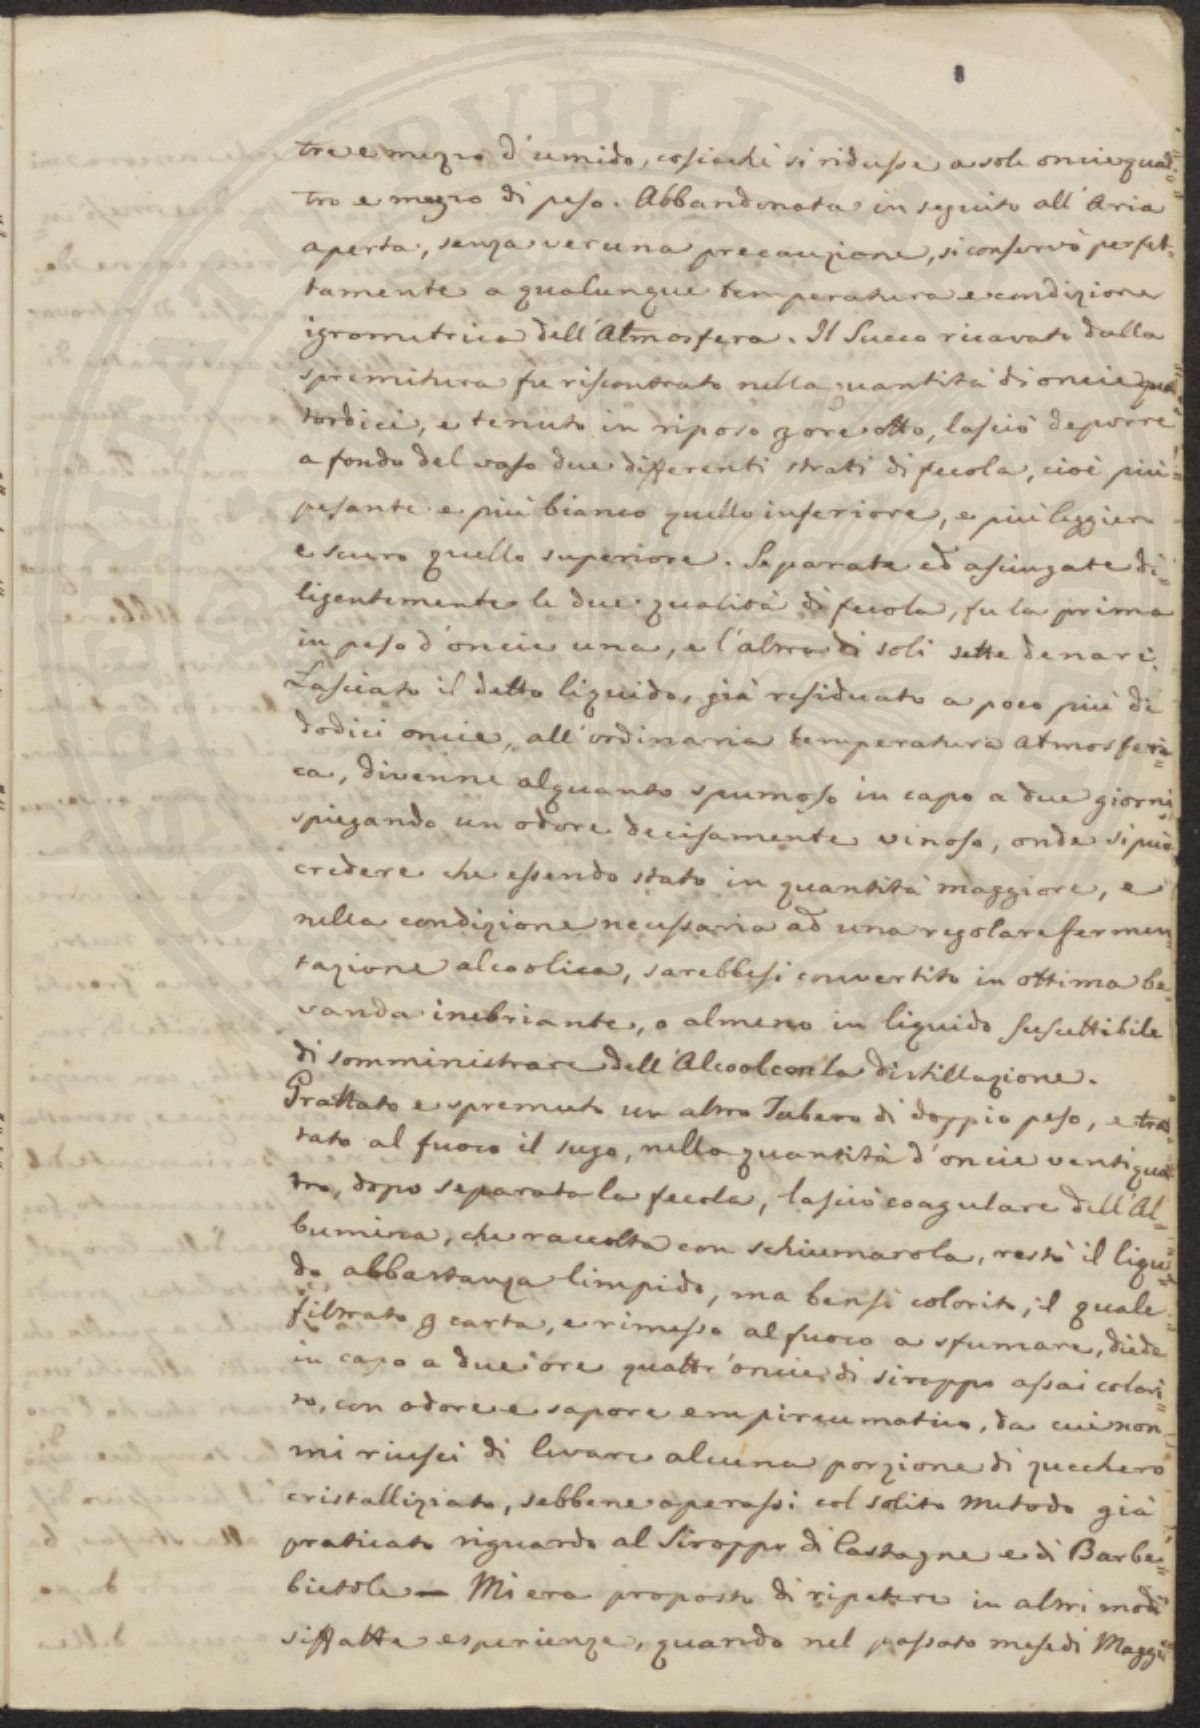 tre e mezzo d'umido, cosicchè si ridusse a sole oncie quat=
tro e mezzo di peso. Abbandonata in seguito all'Aria
aperta, senza veruna precauzione, si conservò perfet=
tamente a qualunque temperatura e condizione
igrometrica dell'Atmosfera. Il Succo ricavato dalla
spremitura fu riscontrato nella quantità di oncie qua=
tordici, e tenuto in riposo p ore otto, lasciò deporre
a fondo del vaso due differenti strati di fecola, cioè più
pesante e più bianco quello inferiore, e più leggiero
e scuro quello superiore. Separate ed asciugate di=
ligentemente le due qualità di fecola, fu la prima
in peso d'oncie una, e l'altra di soli sette denari.
Lasciato il detto liquido, già residuato a poco più di
dodici oncie, all'ordinaria temperatura Atmosferi=
ca, divenne alquanto spumoso in capo a due giorni,
spiegando un odore decisamente vinoso, onde si può
credere che essendo stato in quantità maggiore, e
nella condizione necessaria ad una regolare fermen=
tazione alcoolica, sarebbesi convertito in ottima be=
vanda inebriante, o almeno in liquido suscettibile
di somministrare dell'Alcool con la distillazione.
Grattato e spremuto un altro Tubero di doppio peso, e trat=
tato al fuoco il sugo, nella quantità d'oncie ventiquat=
tro, dopo separata la fecola, lasciò coagulare dell'Al=
bumina, che raccolta con schiumarola, restò il liqui=
do abbastanza limpido, ma bensì colorito; il quale
filtrato p carta, e rimesso al fuoco a sfumare, diede
in capo a due ore quattr'oncie di siroppo assai colori=
to, con odore e sapore empireumatico, da cui non
mi riuscì di levare alcuna porzione di zucchero
cristallizzato, sebbene operassi col solito metodo già
praticato riguardo al Siroppo di Castagne e di Barba=
bietole — Mi era proposto di ripetere in altri modi
siffatte esperienze, quando nel passato mese di Maggio